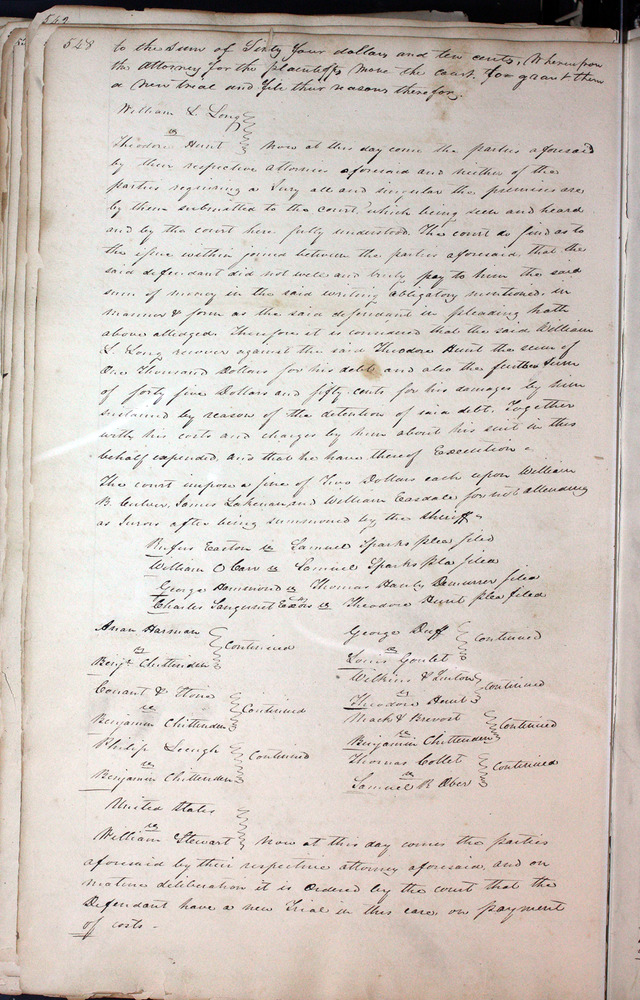 542
548
to the Sum of Sixty four dollars and ten cents, Whereupon
the Attorney for the plaintiffs move the court to grant them
a new trial and file their reasons therefor.
William L. Long
vs
Theodore Hunt Now at this day come the parties aforesaid
by their respective attornies aforesaid and neither of the
parties requiring a Jury all and singular the premises are
by them submitted to the court. which being seen and heard
and by the court here fully understood. The court do find as to
the issue within joined between the parties aforesaid that the
said defendant did not well and truly pay to him the said
sum of money in the said writing obligatory mentioned, in
manner & form as the said defendant in pleading hath
above alledged. Therefore it is considered that the said William
L. Long recover against the said Theodore Hunt the sum of
One Thousand Dollars for his debt and also the further Sum
of forty five Dollars and fifty cents for his damages by him
sustained by reason of the detention of said debt. Together
with his costs and charges by him about his suit in this
behalf expended, and that he have thereof Execution.
The court impose a fine of Two Dollars each upon William
B. Culver, James Lakenan, and William Easdale for not attending
as Jurors after being summoned by the Sheriff.
Rufus Easton vs Samuel Sparks plea filed
William C Carr vs Samuel Sparks Plea filed
George Hammond vs Thomas Hanly Demurrer filed
Charles Sanguinet Exors vs Theodore Hunt plea filed
Aaan Harman
vs Continued
Benjn. Chittenden
Conant & Stone
vs Continued
Benjamin Chittenden
Philip Lough
vs Continued
Benjamin Chittenden
George Duff
vs Continued
Louis Goulet
Wilkins & Linton
vs Continued
Theodore Hunt
Mack & Brevost
vs Continued
Benjamin Chittenden
Thomas Collet
vs Continued
Samuel R Ober
United States
vs
William Stewart Now at this day comes the parties
aforesaid by their respective attorney aforesaid, and on
mature deliberation it is Ordered by the court that the
Defendant have a new Trial in this case, on payment
of costs.